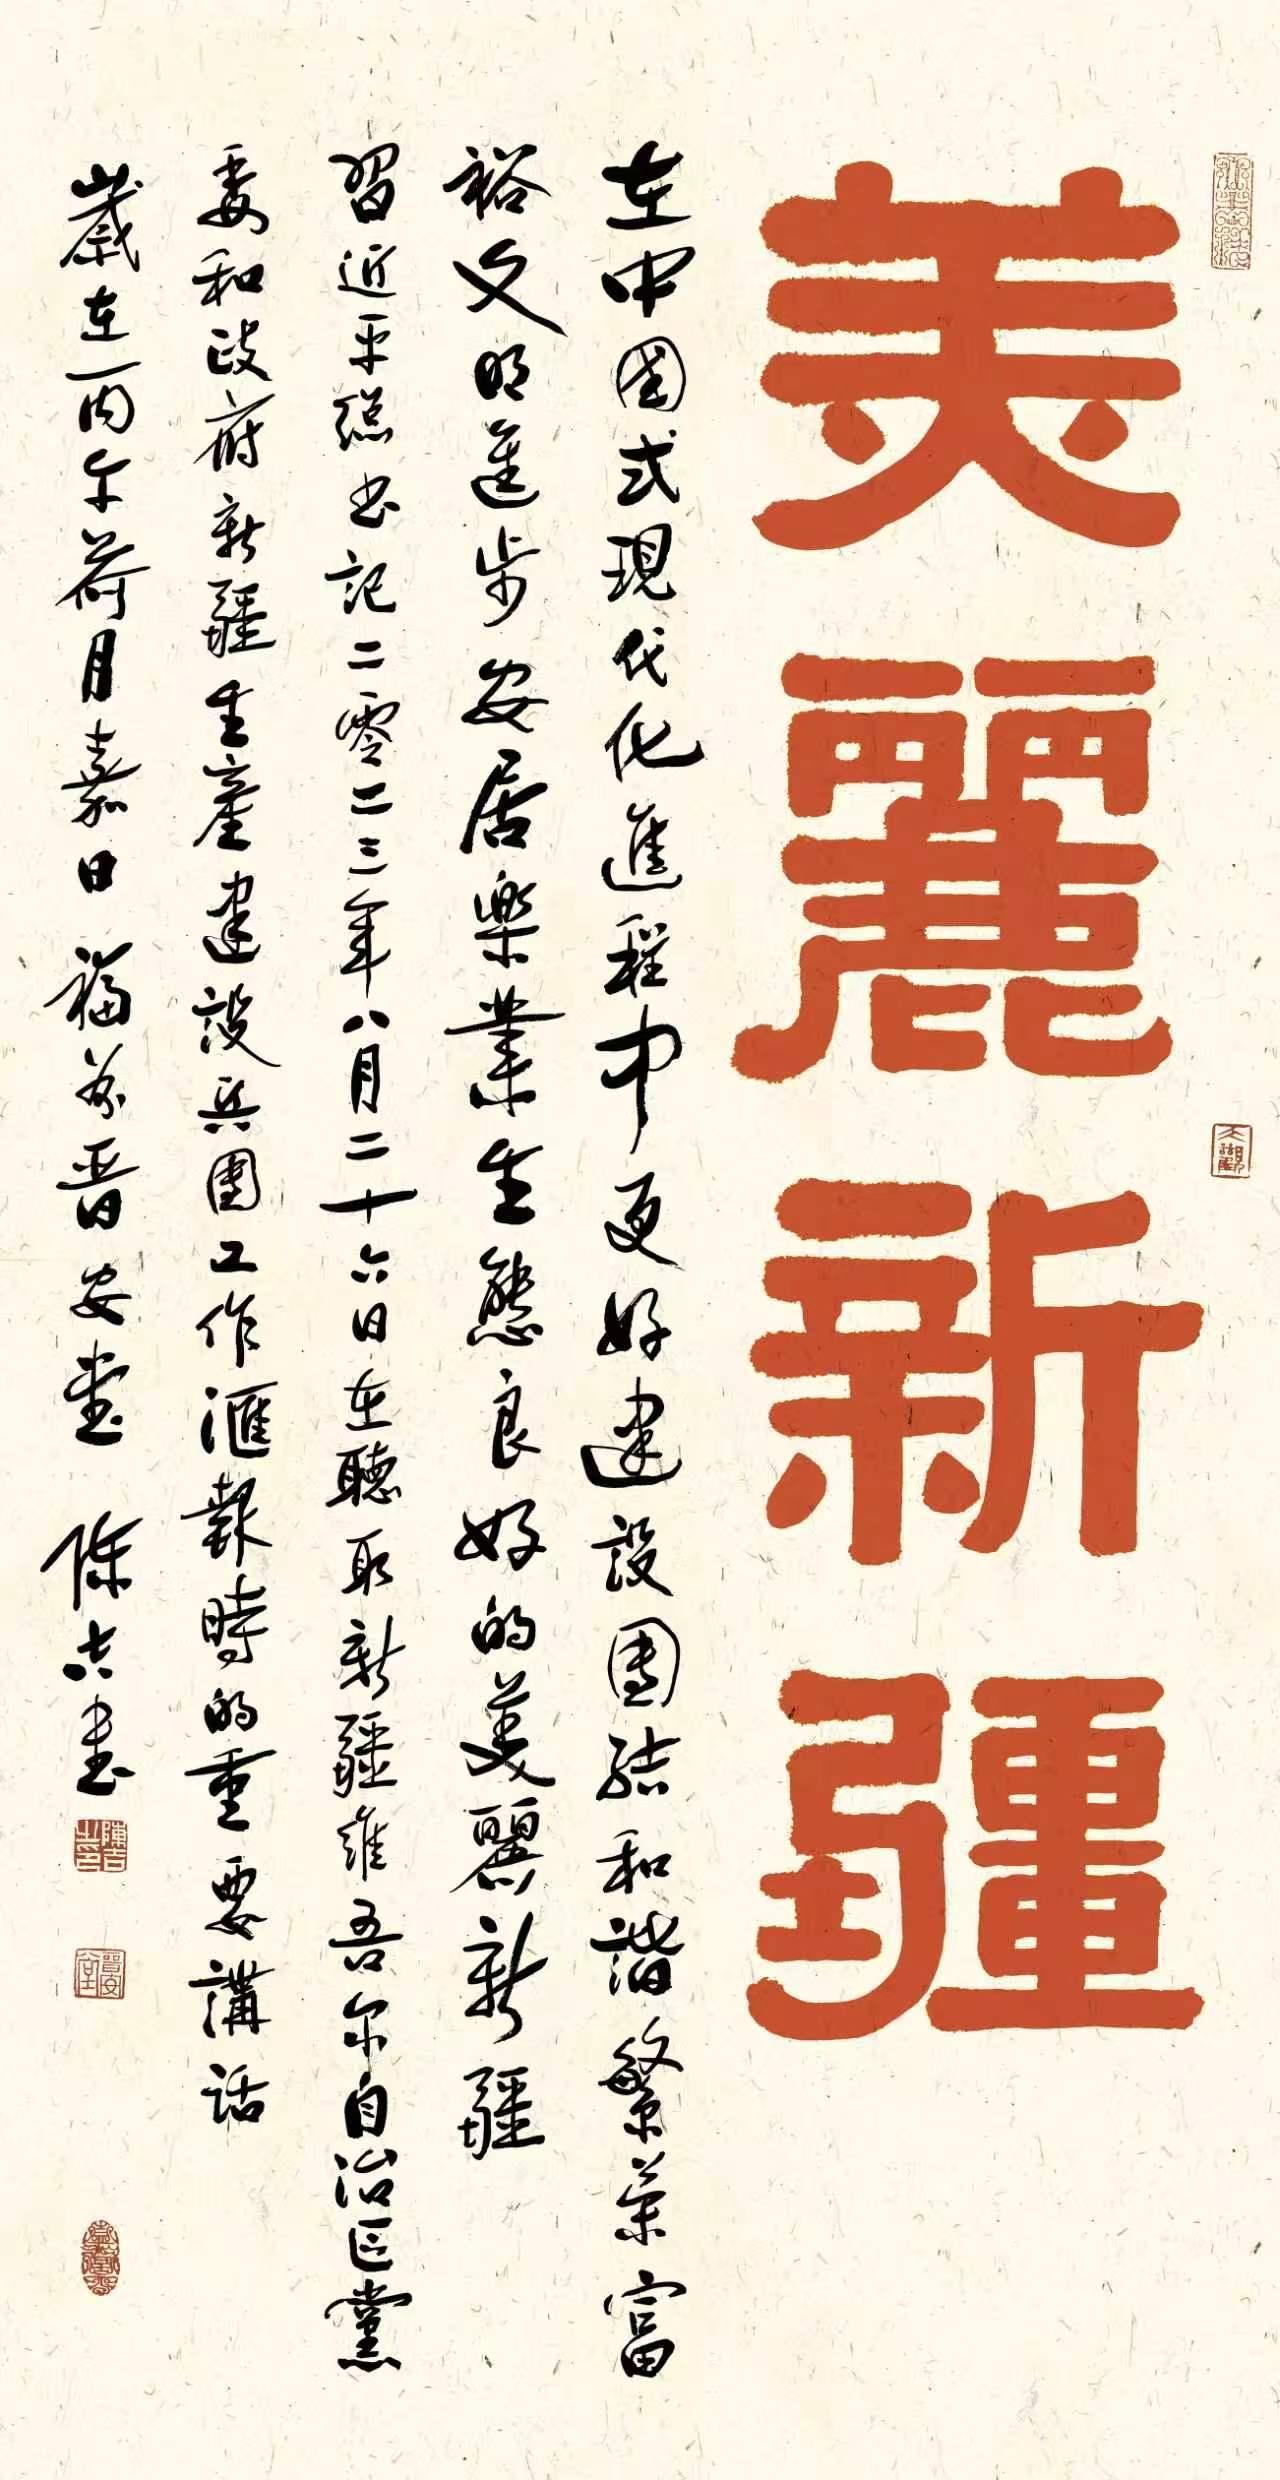 美麗新疆
在中國式現代化進程中更好建設團結和諧繁榮富
裕文明進步安居樂業生態良好的美麗新疆
習近平總書記二零二三年八月二十六日在聽取新疆維吾尔自治區黨
委和政府新疆生產建設兵團工作滙報時的重要講話
歲在丙午荷月嘉日 福州晋安 陳吉書
陳吉之印
晋安堂